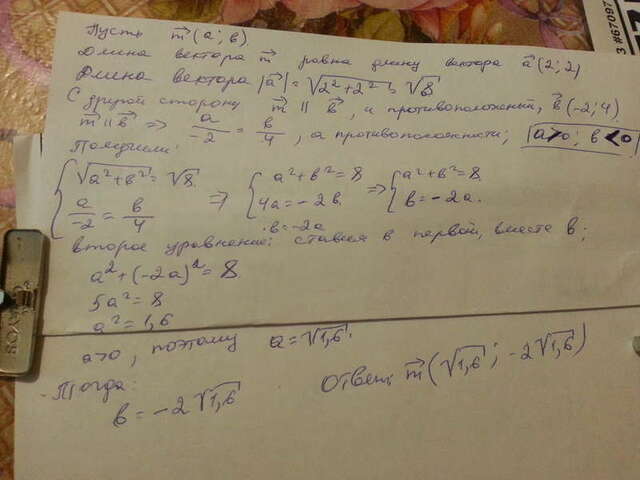 Пусть m⃗ (a; b).
Длина вектора m⃗ равна длину вектора a⃗ (2; 2)
Длина вектора |a⃗| = √2²+2² = √8
С другой сторону m⃗ || b⃗, и противоположный, b⃗ (-2; 4).
m⃗ || b⃗ => a/-2 = b/4, а противоположности; a>0; b<0
Получили:
{ √a²+b² = √8 a/-2 = b/4 => { a²+b²=8 4a=-2b => { a²+b²=8 b=-2a.
b=-2a
второе уравнение: ставим в первой, вместе b;
a²+(-2a)²=8
5a²=8
a²=1,6
a>0, поэтому a=√1,6.
Тогда:
b=-2√1,6
Ответ: m⃗ (√1,6; -2√1,6)
3 #67097